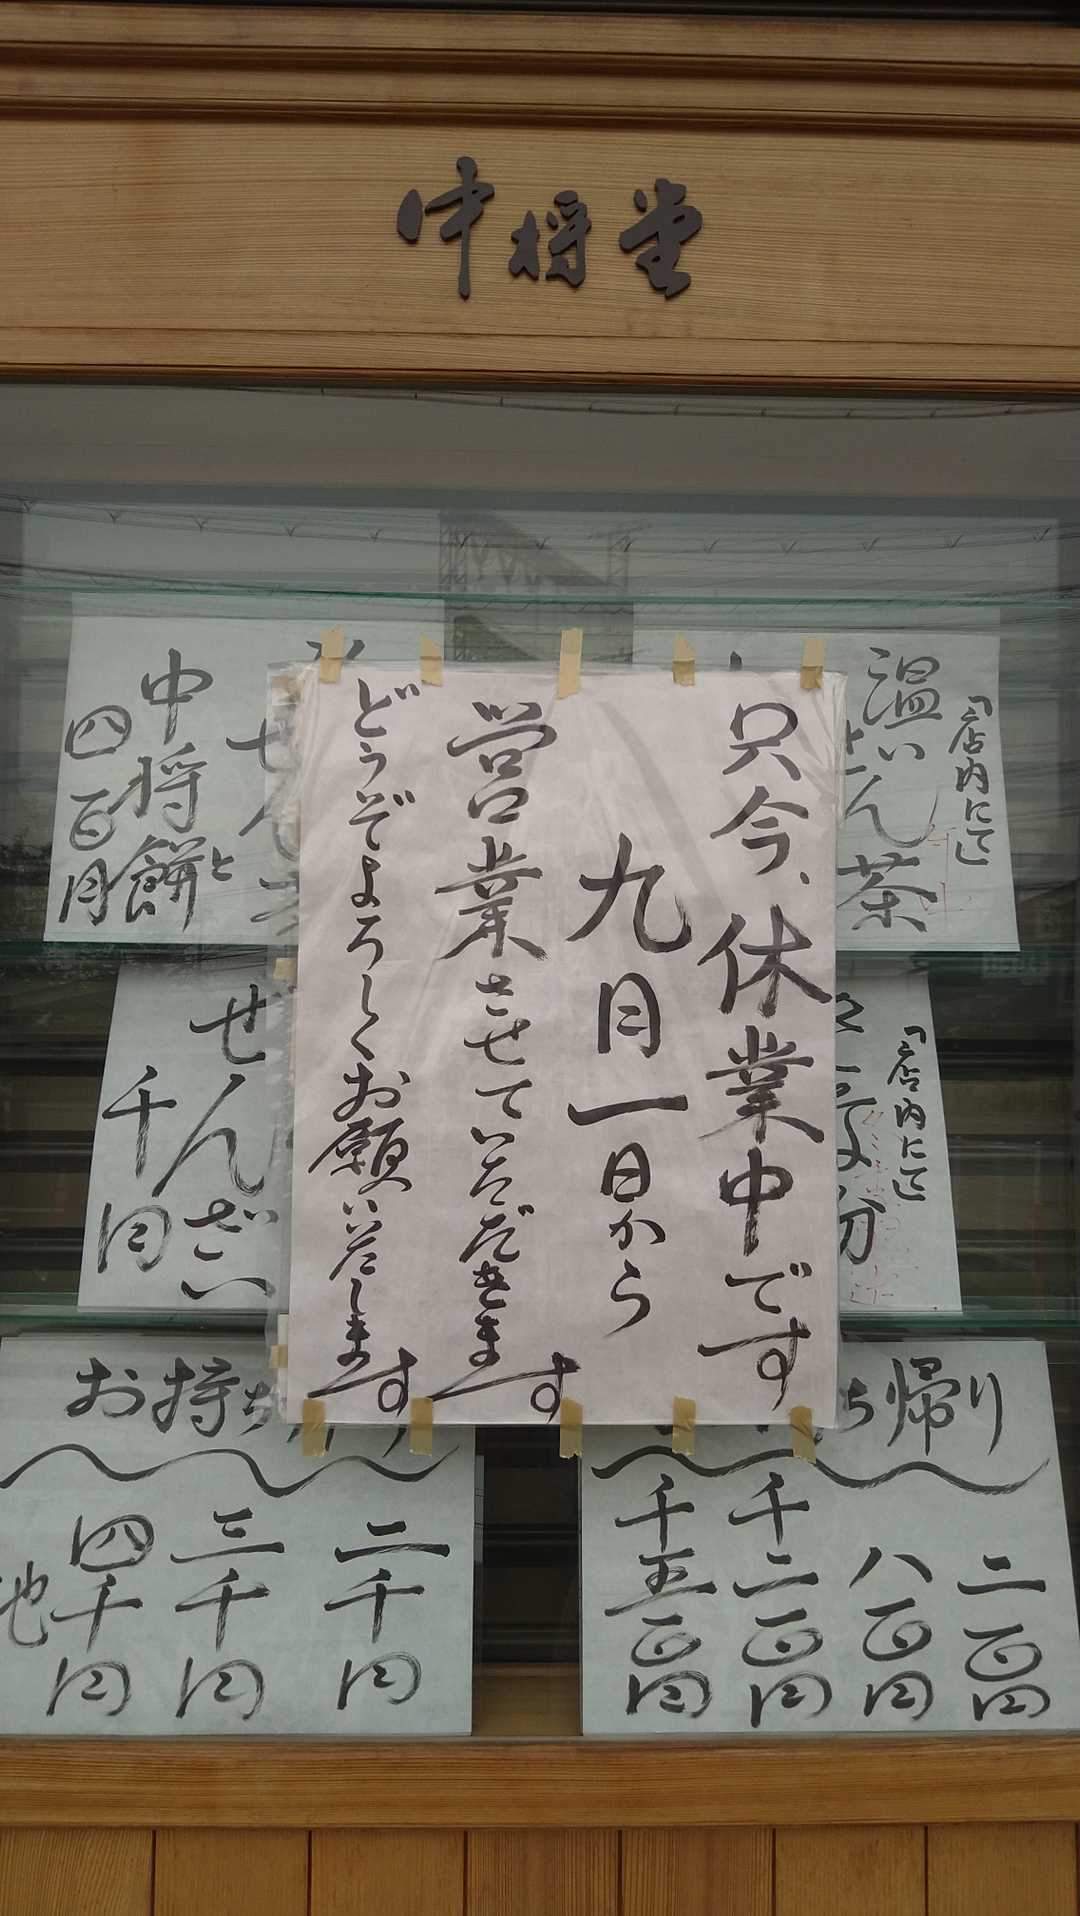 中将堂
只今、休業中です
九月一日から
営業させていただきます
どうぞよろしくお願いいたします
「店内にて」
温い
せん茶
中将餅
と
四百円
「店内にて」
分
ぜんざい
千円
ち帰り
二百円
八百円
千二百円
千五百円
お持ち
り
二千円
三千円
四千円
他